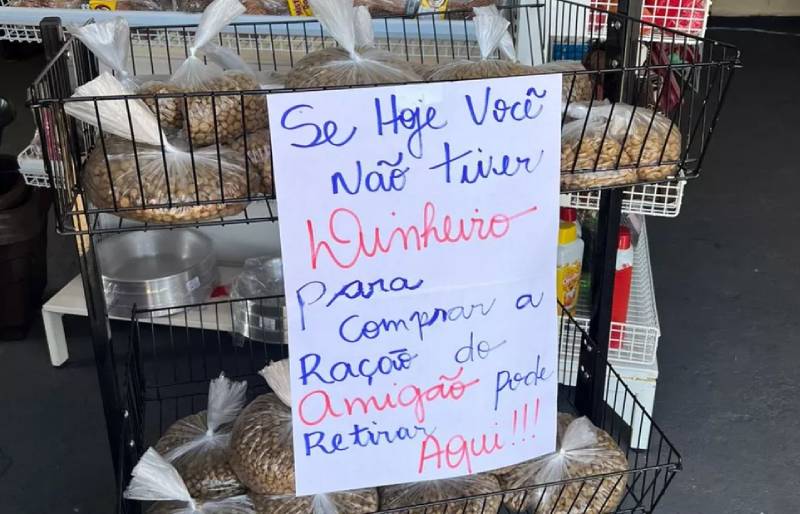 Se Hoje Você
Não tiver
Dinheiro
Para
Comprar a
Ração do
Amigão pode
Retirar Aqui!!!